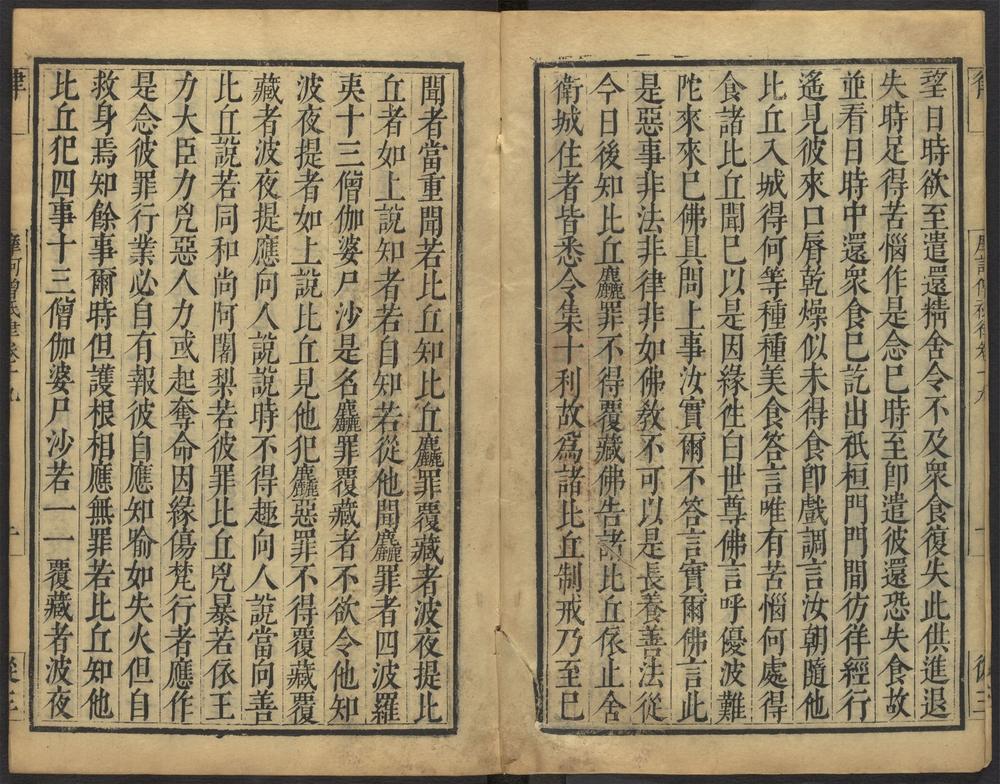 望日時欲至遣還精舍令不及衆食復失此供進退
失時足得苦惱作是念已時至卽遣彼還恐失食故
並看日時中還衆食已訖出祇桓門門閒彷徉經行
遙見彼來口脣乾燥似未得食卽戲調言汝朝隨他
比丘入城得何等種種美食答言唯有苦惱何處得
食諸比丘聞已以是因緣徃白世尊佛言呼優波難
陀來來已佛具問上事汝實爾不答言實爾佛言此
是惡事非法非律非如佛敎不可以是長養善法從
今日後知比丘麤罪不得覆藏佛告諸比丘依止舍
衛城住者皆悉令集十利故爲諸比丘制戒乃至已
聞者當重聞若比丘知比丘麤罪覆藏者波夜提比
丘者如上說知者若自知若從他聞麤罪者四波羅
夷十三僧伽婆尸沙是名麤罪覆藏者不欲令他知
波夜提者如上說比丘見他犯麤惡罪不得覆藏覆
藏者波夜提應向人說說時不得趣向人說當向善
比丘說若同和尚阿闍梨若彼罪比丘兇暴若依王
力大臣力兇惡人力或起奪命因緣傷梵行者應作
是念彼罪行業必自有報彼自應知喻如失火但自
救身焉知餘事爾時但護根相應無罪若比丘知他
比丘犯四事十三僧伽婆尸沙若一一覆藏者波夜